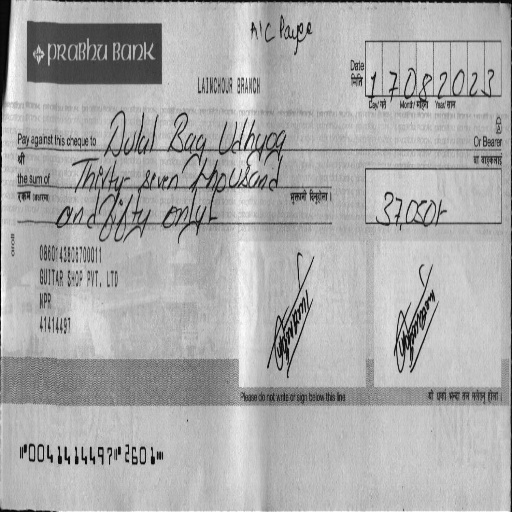 A/C Payee
PRABHU BANK
LAINCHOUR BRANCH
Date
मिति
17082023
Day/ गते Month/ महिना Year/ साल
Pay against this cheque to Dulal Bag Udhyog Or Bearer
श्री वा वाहकलाई
the sum of Thirty seven thousand
रकम (अक्षरमा) and fifty only/- भुक्तानी दिनुहोला ।
37,050/-
0860143805700011
GUITAR SHOP PVT. LTD
NPR
41414497
Please do not write or sign below this line
यो धर्का भन्दा तल नलेख्नु होला ।
⑈0041414497⑈ 2601⑈